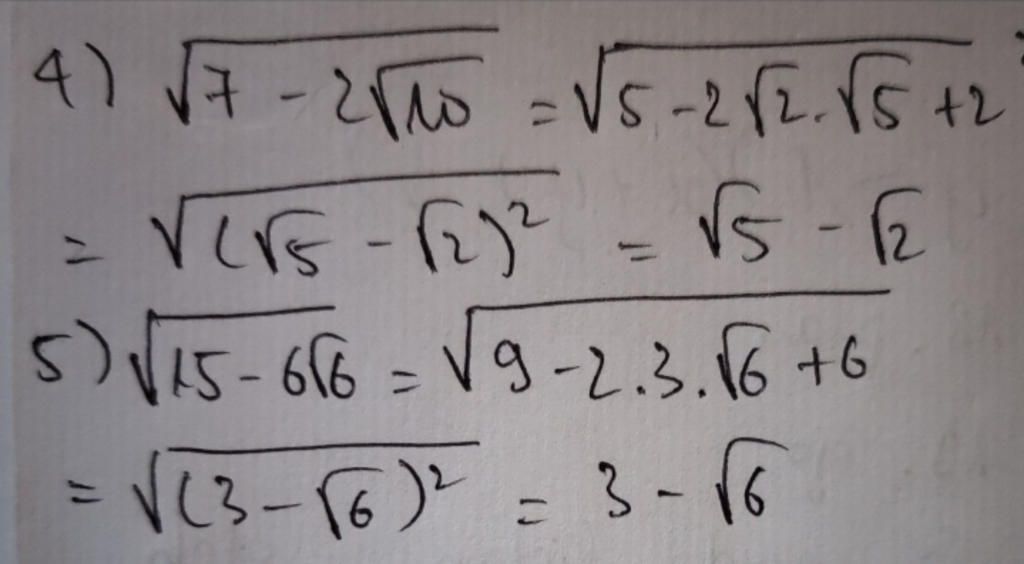 4) √(7 - 2√10) = √(5 - 2√2.√5 + 2)
= √((√5 - √2)²) = √5 - √2
5) √(15 - 6√6) = √(9 - 2.3.√6 + 6)
= √((3 - √6)²) = 3 - √6